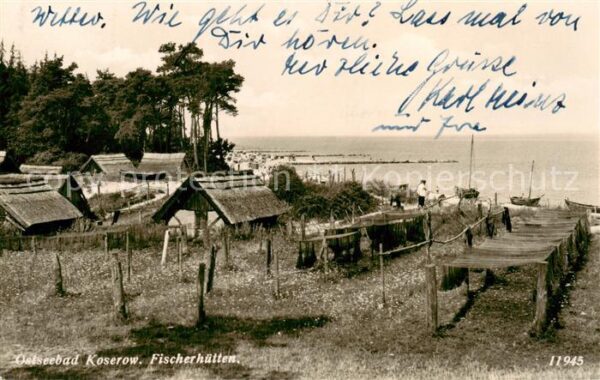 Wetter. Wie geht es Dir? Lass mal von
Dir hören.
Herzliche Grüsse
Karl Heinz
und Ira
Ostseebad Koserow. Fischerhütten.
11945